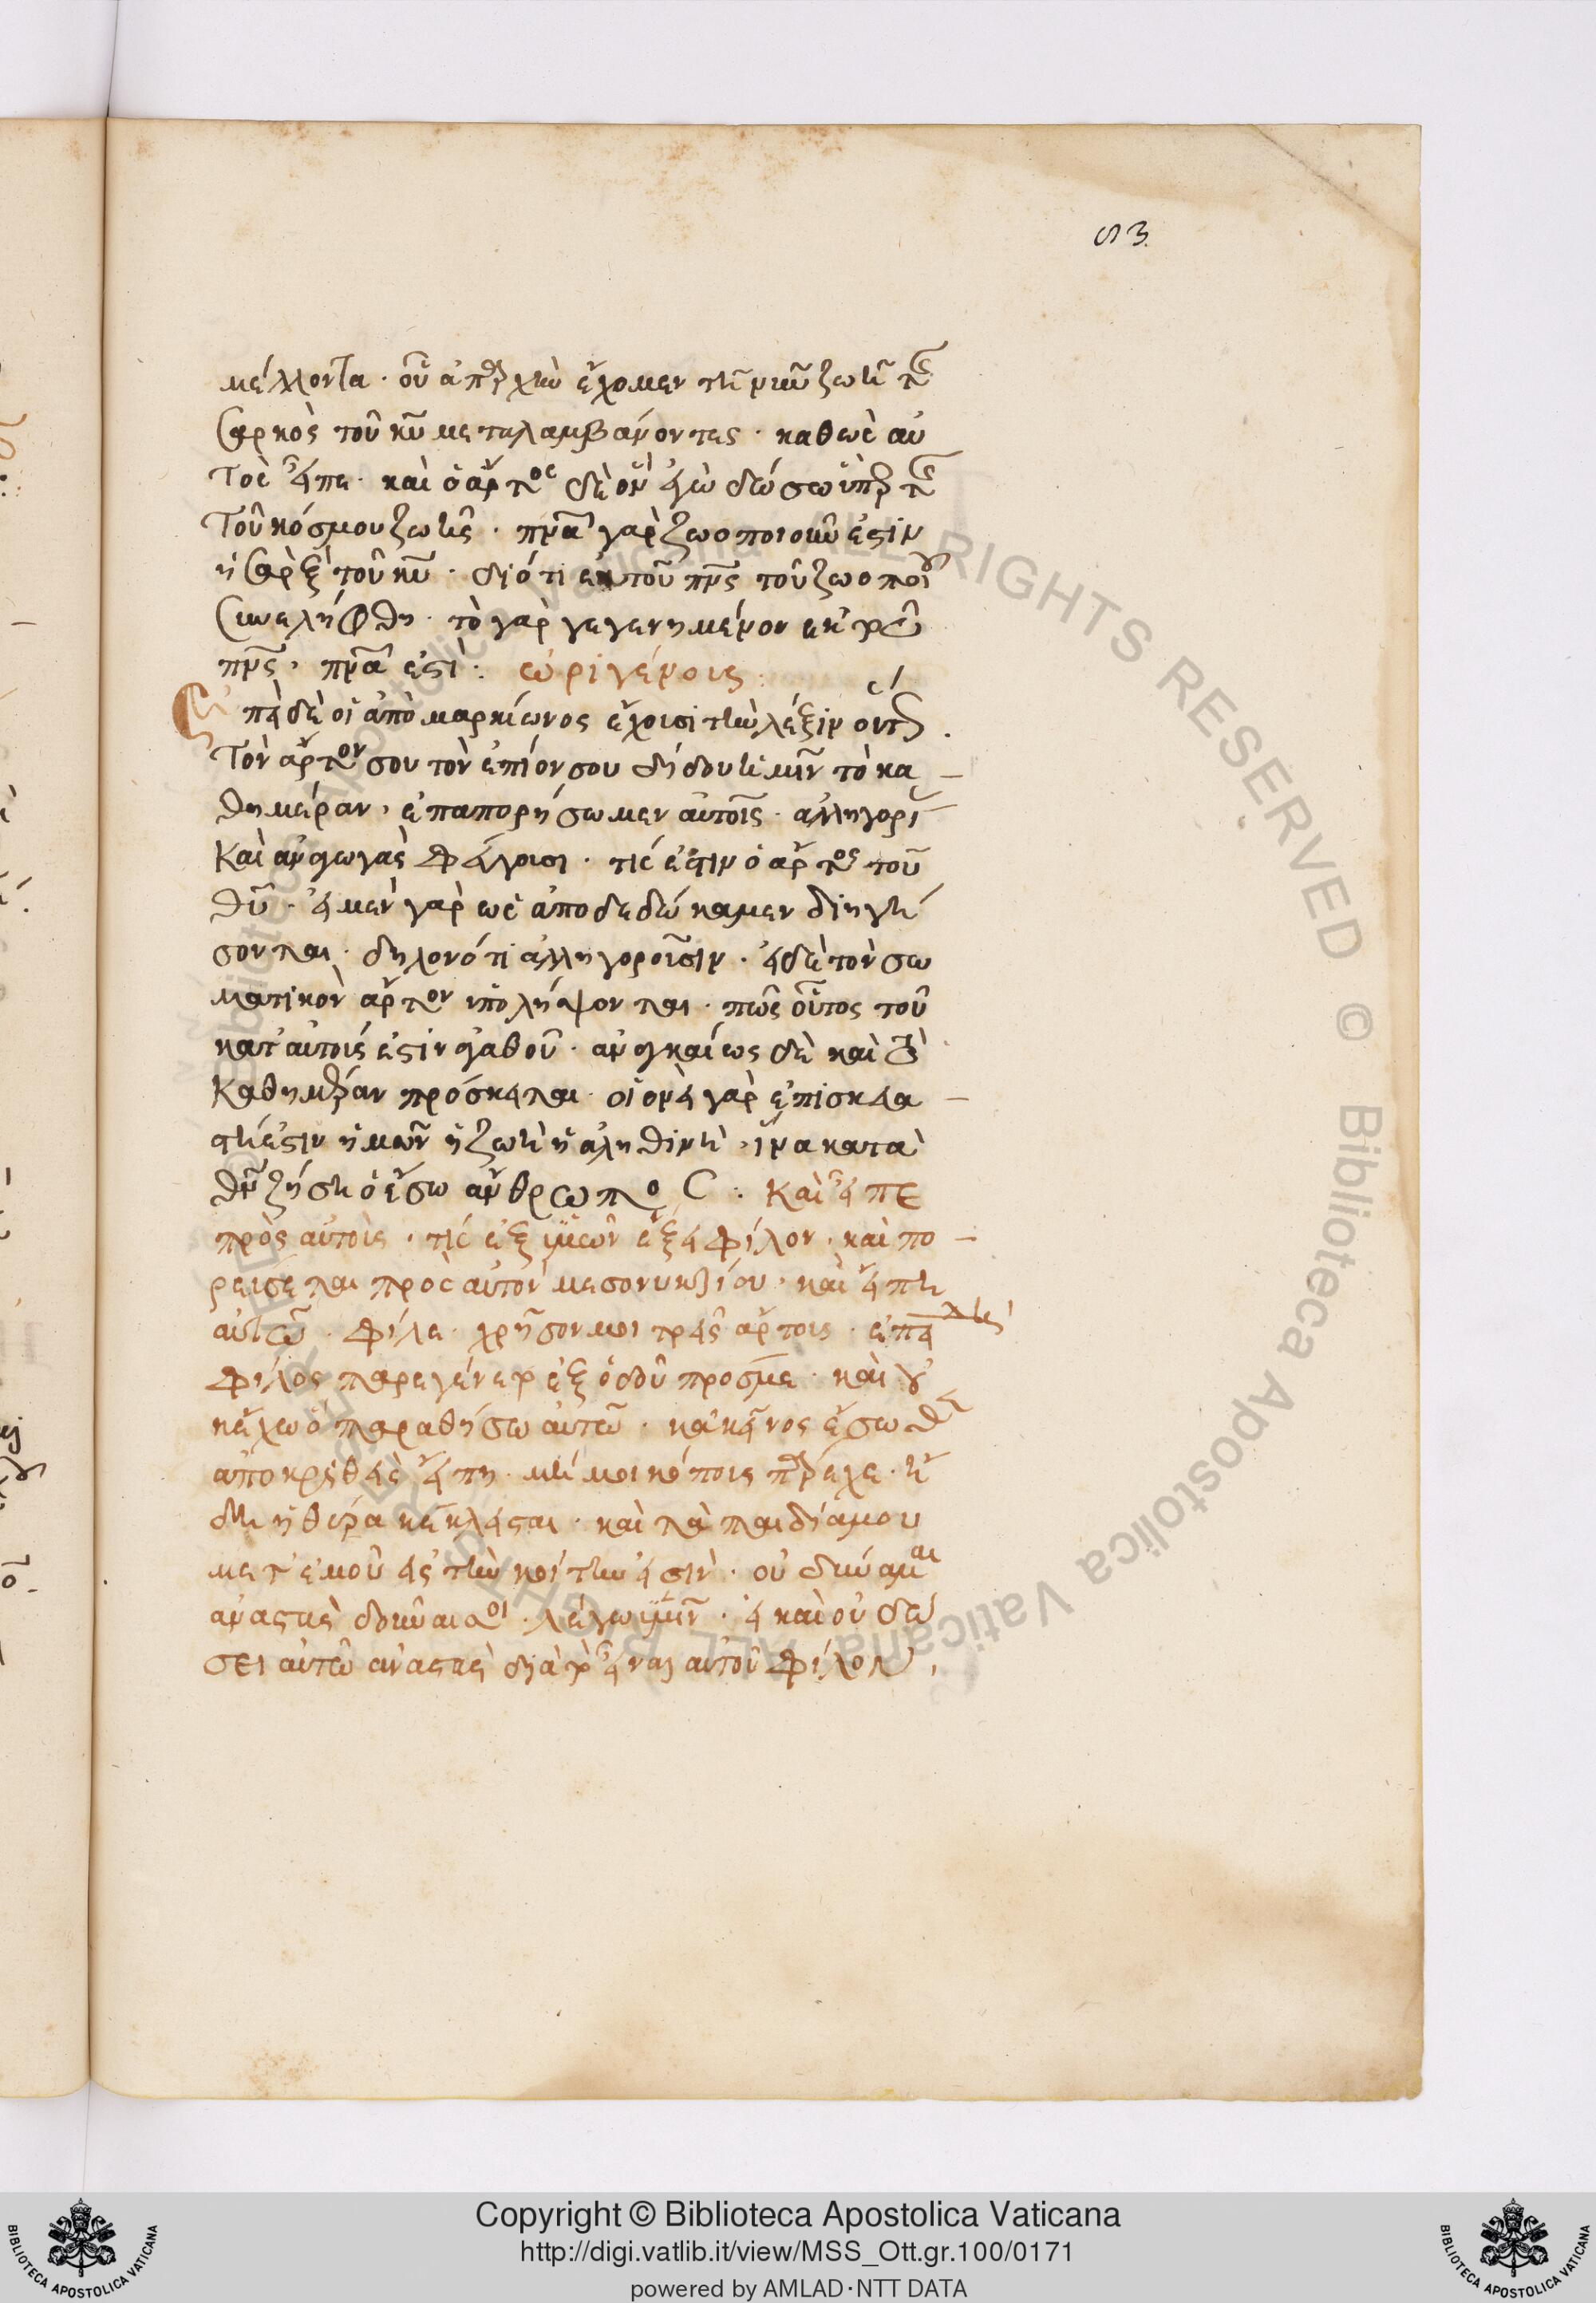 83
μέλλοντα · οὗ ἀπαρχὴν ἔχομεν τῇ νῦν ζωῇ τῆς
σαρκὸς τοῦ κυ μεταλαμβάνοντες · καθὼς αὐ
τὸς εἶπε · καὶ ὁ ἄρτος δὲ ὃν ἐγὼ δώσω ὑπὲρ τῆς
τοῦ κόσμου ζωῆς · πνα γὰρ ζωοποιοῦν ἐστιν
ἡ σὰρξ τοῦ κυ · διότι ἐκ τοῦ πνς τοῦ ζωοποιοῦ
συνελήφθη · τὸ γὰρ γεγενημένον ἐκ τοῦ
πνς · πνα ἐστί : ὠριγένους :
Ἐπεὶ δὲ οἱ ἀπὸ μαρκίωνος ἔχουσι τὴν λέξιν οὕτως ·
Τὸν ἄρτον σου τὸν ἐπιούσιον δίδου ἡμῖν τὸ κα
θημέραν · ἐπαπορήσωμεν αὐτοῖς · ἀλληγορί
καὶ ἀναγωγὰς φεύγουσι · τίς ἐστιν ὁ ἄρτος τοῦ
θυ · εἰ μὲν γὰρ ὡς ἀποδεδώκαμεν διηγή
σονται · δηλονότι ἀλληγοροῦσιν · εἰ δὲ τὸν σω
ματικὸν ἄρτον ὑπολήψονται · πῶς οὗτος τοῦ
κατ' αὐτοὺς ἐστὶν ἀγαθοῦ · ἀναγκαίως δὲ καὶ τὸ
καθημέραν πρόσκειται · οἱονεὶ γὰρ ἐπισκεα
στή ἐστιν ἡμῶν ἡ ζωὴ ἡ ἀληθινὴ · ἵνα κατὰ
θν ζήσῃ ὁ ἔσω ἄνθρωπος : Καὶ εἶπε
πρὸς αὐτούς · τίς ἐξ ὑμῶν ἕξει φίλον · καὶ πο
ρεύσεται πρὸς αὐτὸν μεσονυκτίου · καὶ εἴπῃ
αὐτῷ · φίλε · χρῆσόν μοι τρεῖς ἄρτους · ἐπειδὴ
φίλος παρεγένετο ἐξ ὁδοῦ πρός με · καὶ οὐ
κ ἔχω ὃ παραθήσω αὐτῷ · κἀκεῖνος ἔσωθεν
ἀποκριθεὶς εἴπῃ · μή μοι κόπους πάρεχε · ἤ
δη ἡ θύρα κέκλεισται · καὶ τὰ παιδία μου
μετ' ἐμοῦ εἰς τὴν κοίτην εἰσὶν · οὐ δύναμαι
ἀναστὰς δοῦναι σοι · λέγω ὑμῖν · εἰ καὶ οὐ δώ
σει αὐτῷ ἀναστὰς διὰ τὸ εἶναι αὐτοῦ φίλον ·
Copyright © Biblioteca Apostolica Vaticana
http://digi.vatlib.it/view/MSS_Ott.gr.100/0171
powered by AMLAD·NTT DATA
BIBLIOTECA APOSTOLICA VATICANA
BIBLIOTECA APOSTOLICA VATICANA
© Biblioteca Apostolica Vaticana ALL RIGHTS RESERVED
© Biblioteca Apostolica Vaticana ALL RIGHTS RESERVED